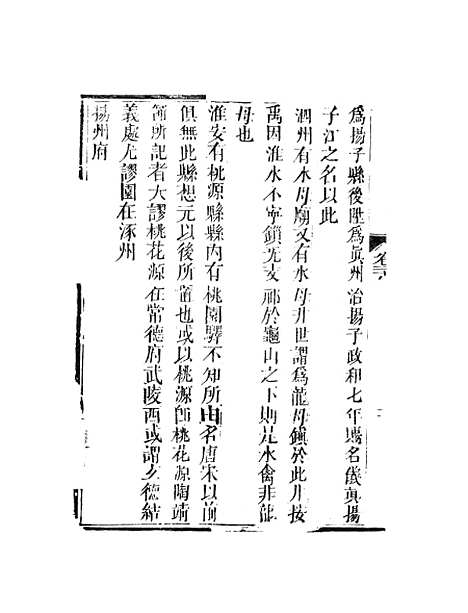 爲揚子縣後陞爲眞州治揚子政和七年賜名儀眞揚
子江之名以此
泗州有水母廟又有水母井世謂爲龍母鎮於此井按
禹因淮水不寧鎖无支祁於龜山之下則是水禽非龍
母也
淮安有桃源縣縣内有桃園驛不知所由名唐宋以前
俱無此縣想元以後所置也或以桃源即桃花源陶靖
節所記者大謬桃花源在常德府武陵西或謂玄德結
義處尤謬園在涿州
揚州府